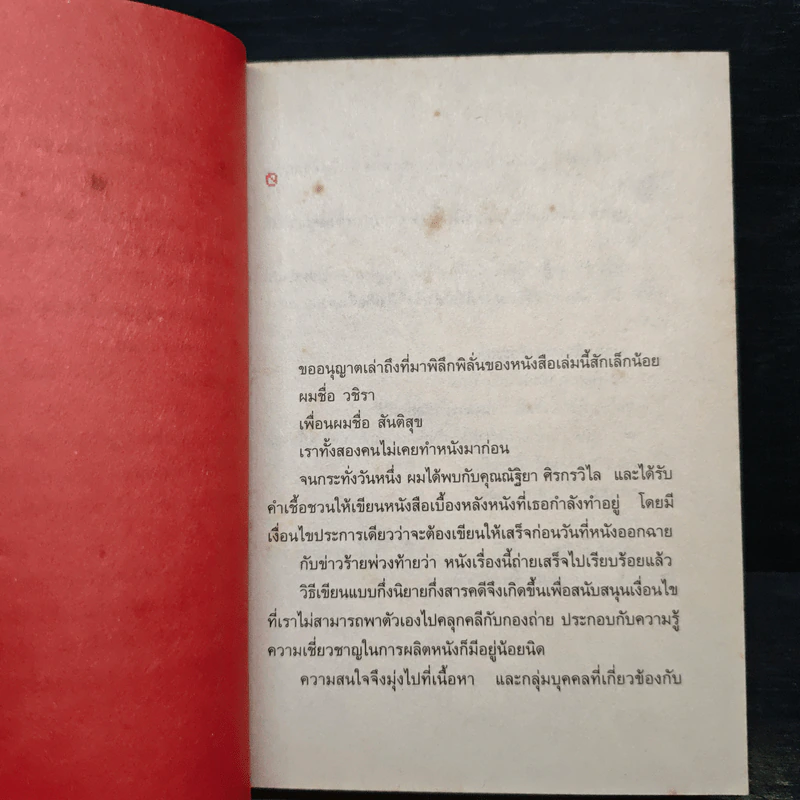 ขออนุญาตเล่าถึงที่มาพิลึกพิลั่นของหนังสือเล่มนี้สักเล็กน้อย
ผมชื่อ วชิรา
เพื่อนผมชื่อ สันติสุข
เราทั้งสองคนไม่เคยทำหนังมาก่อน
จนกระทั่งวันหนึ่ง ผมได้พบกับคุณณัฐิยา ศิรกรวิไล และได้รับ
คำเชื้อชวนให้เขียนหนังสือเบื้องหลังหนังที่เธอกำลังทำอยู่ โดยมี
เงื่อนไขประการเดียวว่าจะต้องเขียนให้เสร็จก่อนวันที่หนังออกฉาย
กับข่าวร้ายพ่วงท้ายว่า หนังเรื่องนี้ถ่ายเสร็จไปเรียบร้อยแล้ว
วิธีเขียนแบบกึ่งนิยายกึ่งสารคดีจึงเกิดขึ้นเพื่อสนับสนุนเงื่อนไข
ที่เราไม่สามารถพาตัวเองไปคลุกคลีกับกองถ่าย ประกอบกับความรู้
ความเชี่ยวชาญในการผลิตหนังก็มีอยู่น้อยนิด
ความสนใจจึงมุ่งไปที่เนื้อหา และกลุ่มบุคคลที่เกี่ยวข้องกับ